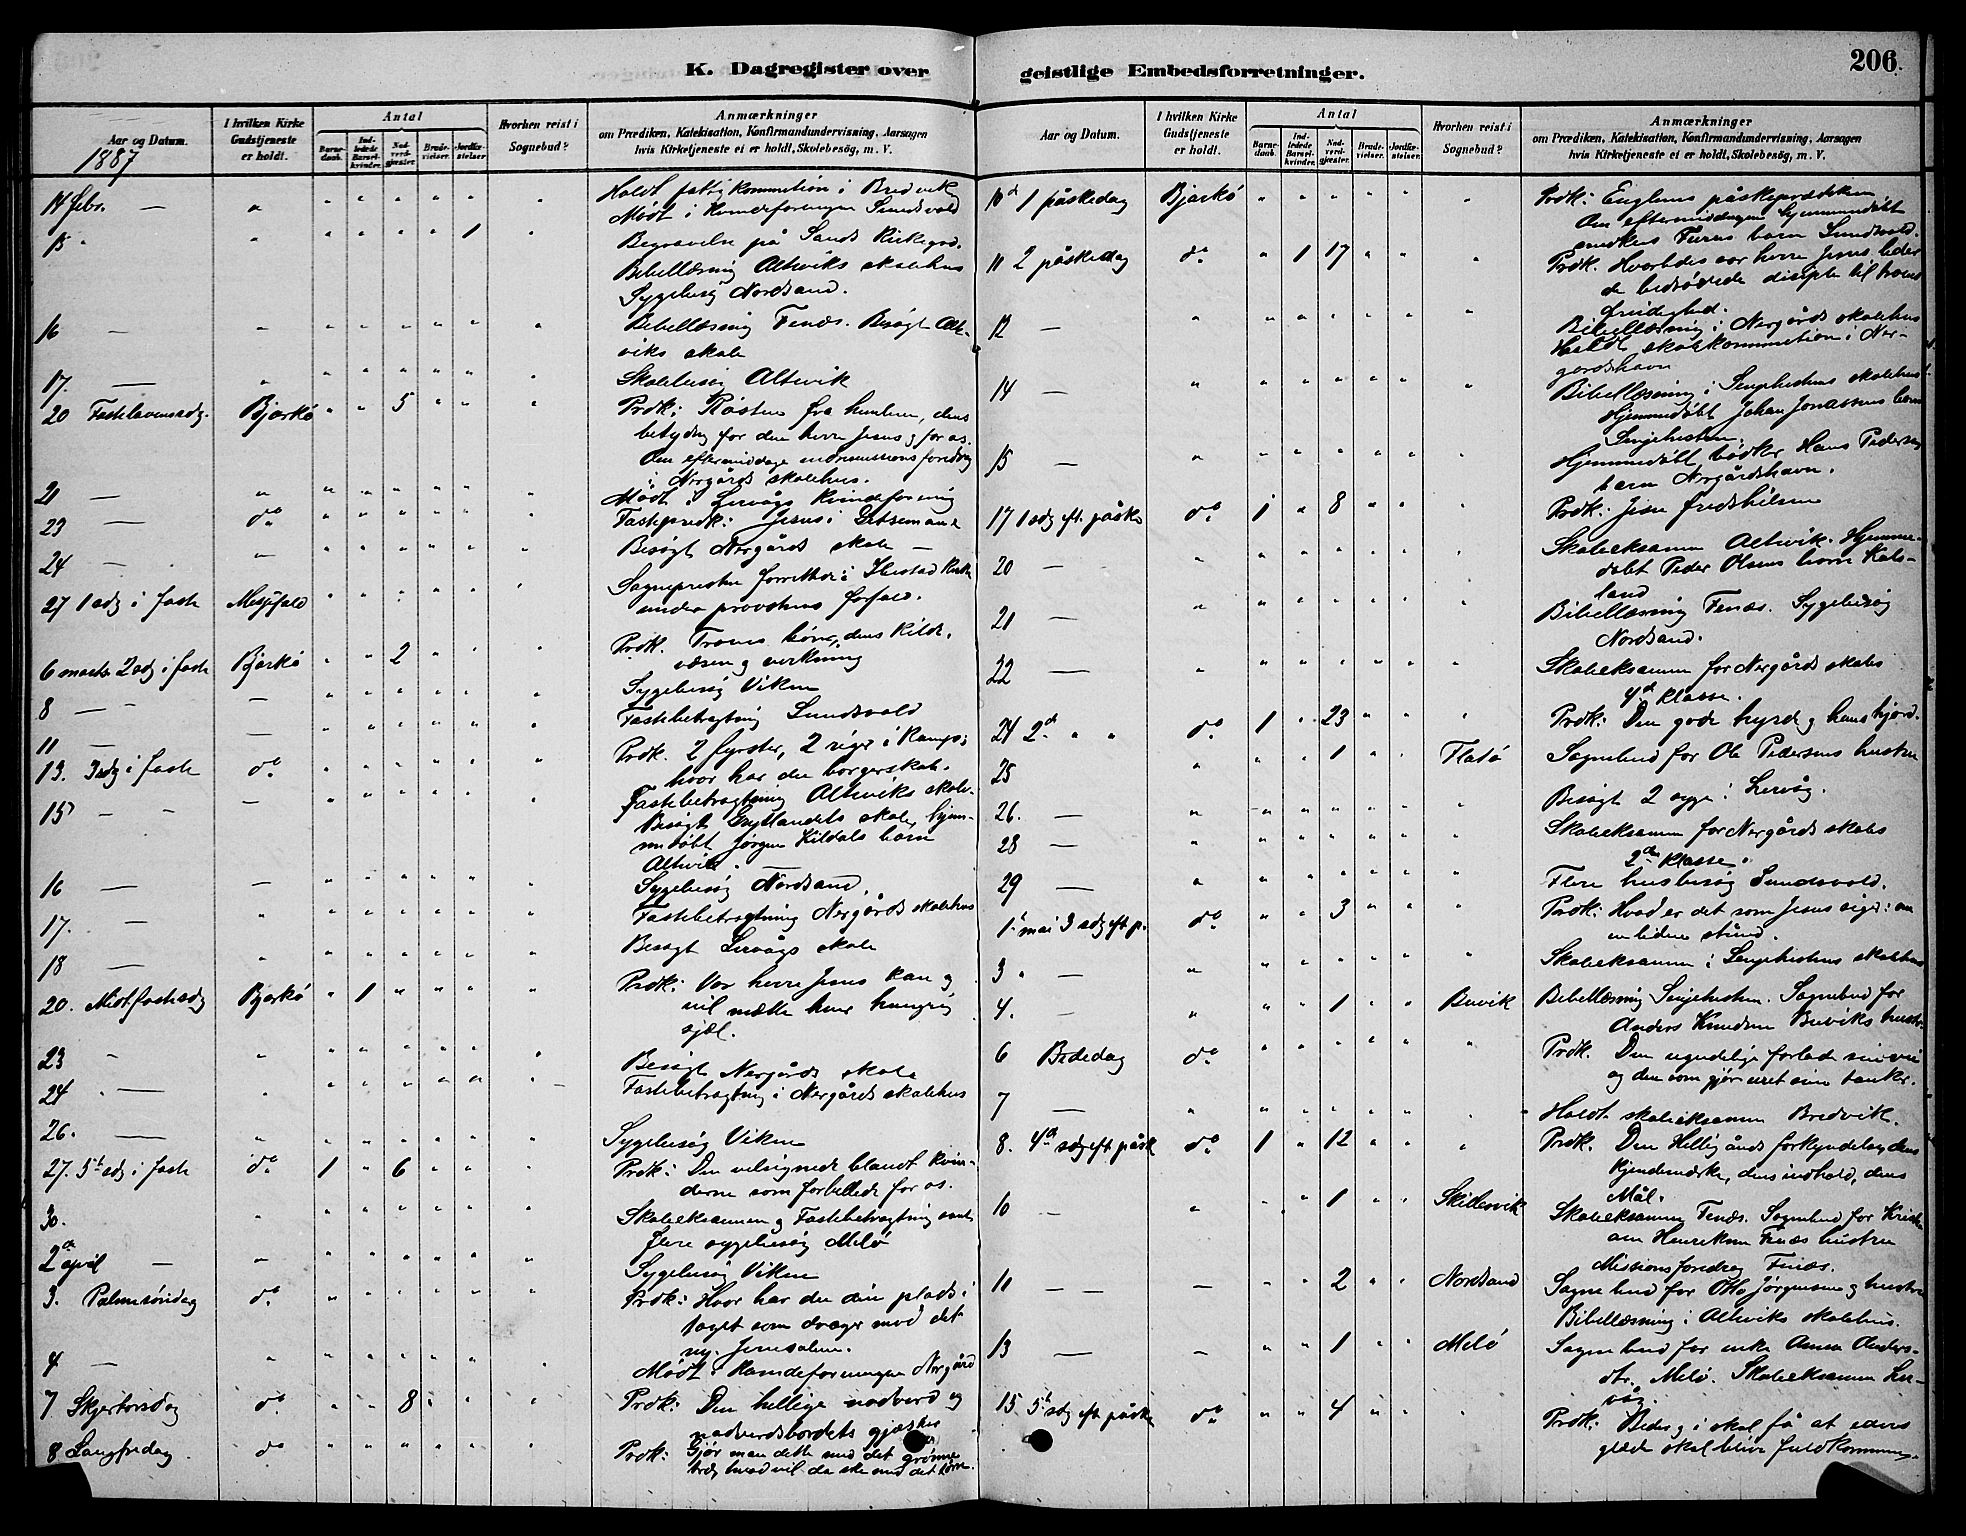 206.
K. Dagregister over geistlige Embedsforretninger.
Aar og Datum.
I hvilken Kirke Gudstjeneste er holdt.
Antal
Barnedaab.
Indledede Barselkvinder.
Nadverdgjester.
Brudevielser.
Jordfæstelser.
Hvorhen reist i Sognebud?
Anmærkninger
om Prædiken, Katekisation, Konfirmandundervisning, Aarsagen
hvis Kirketjeneste ei er holdt, Skolebesøg, m. V.
1887
14 febr. — " " " " " " " Holdt kommution i Bredvik
Mødt i Kvindeforeningen Sundsvold
15 " " " " " " 1 " Begravelse på Sands Kirkegrd.
Bibellæsning Alteviks skolehus
Sygebesøg Nordsand.
16 — " " " " " " " Bibellæsning Fenæs. Besøgt Alteviks skole
17. — " " " " " " " Skolebesøg Altevik
20 Fastelavnssdg. Bjarkö " " 5 " " " Prdk: Røsten fra himlen, dens
betydng for den herre Jesus og for os.
Om eftermiddage indremissionsforedrag
i Nergårds skolehus.
21 — " " " " " " " Mødt i Lervågs Kvindeforening
23 — do " " " " " " Fasteprdk: Jesus i Getsemane
24 — — " " " " " " Besøgt Nergårds skole —
27 1 sdg i faste Mesfjord " " " " " " Sognepresten forretter i Ibestad Kirke
under provstens forfald.
6 marts 2 sdg i faste Bjarkö " " 2 " " " Prdk. Troens bøn, dens kilde,
væsen og virkning
8 — — " " " " " " Sygebesøg Viken
11 — — " " " " " " Fastebetragtning Sundsvold
13. 3 sdg i faste do " " " " " " Prdk. 2 fyrster, 2 riger i Kamp;
hvor har du borgerskab.
15 — — " " " " " " Fastebetragtning Alteviks skole.
Besøgt Grytlandets skole, hjemmedøbt Jørgen Kildals barn
Altevik.
16 — — " " " " " " Sygebesøg Nordsand.
17. — " " " " " " " Fastebetragtning Nergårds skolehus
18 — " " " " " " " Besøgt Lervågs skole
20. Midtfastesdg Bjarkö " 1 " " " " Prdk: Vor herre Jesus kan og
vil mætte hver hungrig
sjæl.
23 " " " " " " " " Besøgt Nergårds skole
24 — " " " " " " " Fastebetragtning i Nergårds skolehus
26. — " " " " " " " Sygebesøg Viken
27. 5te sdg i faste do 1 " 6 " " " Prdk: Den velsignede blandt kvinderne som forbillede for os.
30. " " " " " " " Skoleeksamen og Fastebetragtning samt
flere sygebesøg Melö
2den april — " " " " " " " Sygebesøg Viken
3. Palmesøndag do " " " " " " Prdk: Hvor har du din plads i
toget som drager mod det
ny Jerusalem.
4 — " " " " " " " Mødt i Kvindeforeningen Nergård
7 Skjertorsdag do " " 8 " " " Prdk: Den hellige nadverd og
nadverdsbordets gjæster
8 Langfredag do " " " " " " Prdk: Gjør man dette med det grønne
træ, hvad vil da ske med det tørre.
Aar og Datum.
I hvilken Kirke Gudstjeneste er holdt.
Antal
Barnedaab.
Indledede Barselkvinder.
Nadverdgjester.
Brudevielser.
Jordfæstelser.
Hvorhen reist i Sognebud?
Anmærkninger
om Prædiken, Katekisation, Konfirmandundervisning, Aarsagen
hvis Kirketjeneste ei er holdt, Skolebesøg, m. V.
10d 1 påskedag Bjarkö " " " " " " Prdk: Englens påskeprædiken
Om eftermiddagen hjemmedøbt
barn Sundsvold.
11 2 påskedag do " 1 17 " " " Prdk. Hvorledes vor herre Jesus leder
de bedrøvede disiple til troens
frimodighed.
12 — " " " " " " " Bibellæsning i Nergårds skolehus
Holdt skolekommution i Nergårdshavn
14 — " " " " " " " Bibellæsning i Senjehestens skolehus
Hjemmedøbt Johan Jonassens barn
Senjehesten.
15 — " " " " " " " Hjemmedøbt bödker Hans Pedersens
barn Nergårdshavn.
17 1 sdg eft. påske do 1 " 8 " " " Prdk: Jesu fredshilsen
20 — " " " " " " " Skoleeksamen Altevik. Hjemmedøbt Peder Olsens barn Kalsland
21 — " " " " " " " Bibellæsning Fenæs. Sygebesøg
Nordsand.
22 — " " " " " " " Skoleeksamen for Nergårds skoles
4de klasse.
24 2den " " do 1 " 23 " " " Prdk: Den gode hyrde og hans hjord.
25 " " " 1 " " Flatö Sognebud for Ole Pedersens hustru
26. — " " " " " " " Besøgt 2 syge i Lervåg.
28 — " " " " " " " Skoleeksamen for Nergårds skoles
2den klasse.
29 — " " " " " " " Flere husbesøg Sundsvold.
1. mai 3 sdg eft p. do " " 3 " " " Prdk: Hvad er det som Jesus siger: om
en liden stund.
3 " — " " " " " " " Skoleeksamen i Senjehestens skolehus
4. — " " " 1 " " Buvik Bibellæsning Senjehesten. Sognebud for
Anders Knudsen Buviks hustr.
6 Bededag do " " " " " " Prdk. Den ugudelige forlade sin vei
og den som gjør uret sine tanker.
7 — " " " " " " " Holdt skoleeksamen Bredvik.
8. 4de sdg eft påsk do 1 " 12 " " " Prdk. Den Hellig ånds forkyndelse, dens
kjendemærke, dens indhold, dens
Mål.
10 — " " " 1 " " Skillesvik Skoleeksamen Fenæs. Sognebud for Kristian Henriksen Fenæs hustru
Missionsforedrag Fenæs.
11 — — — " " 2 " " Nordsand Sognebud for Otto Jørgensen og hustru
Bibellæsning i Alteviks skolehus.
13 — " " 1 " " Melö Sognebud for enke Anna Andersdtr. Melö. Skoleeksamen Lervåg.
15 5te sdg eft påske do " " 4 " " " Prdk: Beder og i skal få at eders
glæde skal blive fuldkommen.